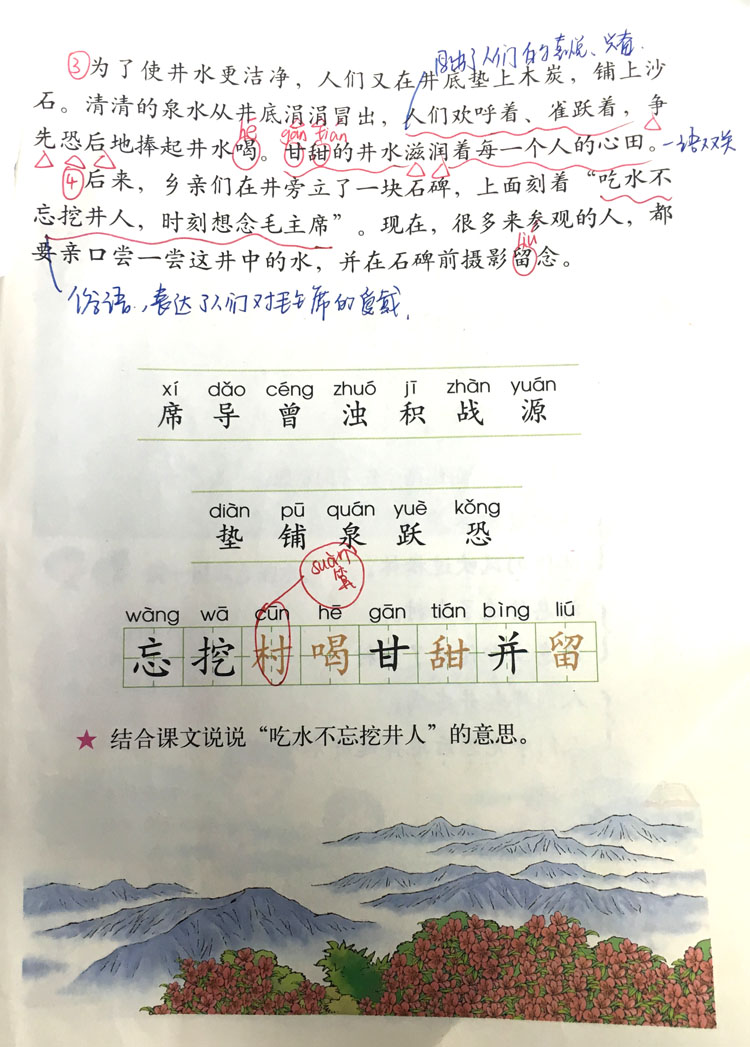 写出了人们的喜悦、兴奋
③为了使井水更洁净，人们又在井底垫上木炭，铺上沙
石。清清的泉水从井底涓涓冒出，人们欢呼着、雀跃着，争
hē gān tián
先恐后地捧起井水喝。甘甜的井水滋润着每一个人的心田。一语双关
④后来，乡亲们在井旁立了一块石碑，上面刻着“吃水不
忘挖井人，时刻想念毛主席”。现在，很多来参观的人，都
liú
要亲口尝一尝这井中的水，并在石碑前摄影留念。
俗语，表达了人们对毛主席的爱戴.
xí dǎo céng zhuó jī zhàn yuán
席 导 曾 浊 积 战 源
diàn pū quán yuè kǒng
垫 铺 泉 跃 恐
suàn
算
wàng wā cūn hē gān tián bìng liú
忘 挖 村 喝 甘 甜 并 留
★ 结合课文说说“吃水不忘挖井人”的意思。